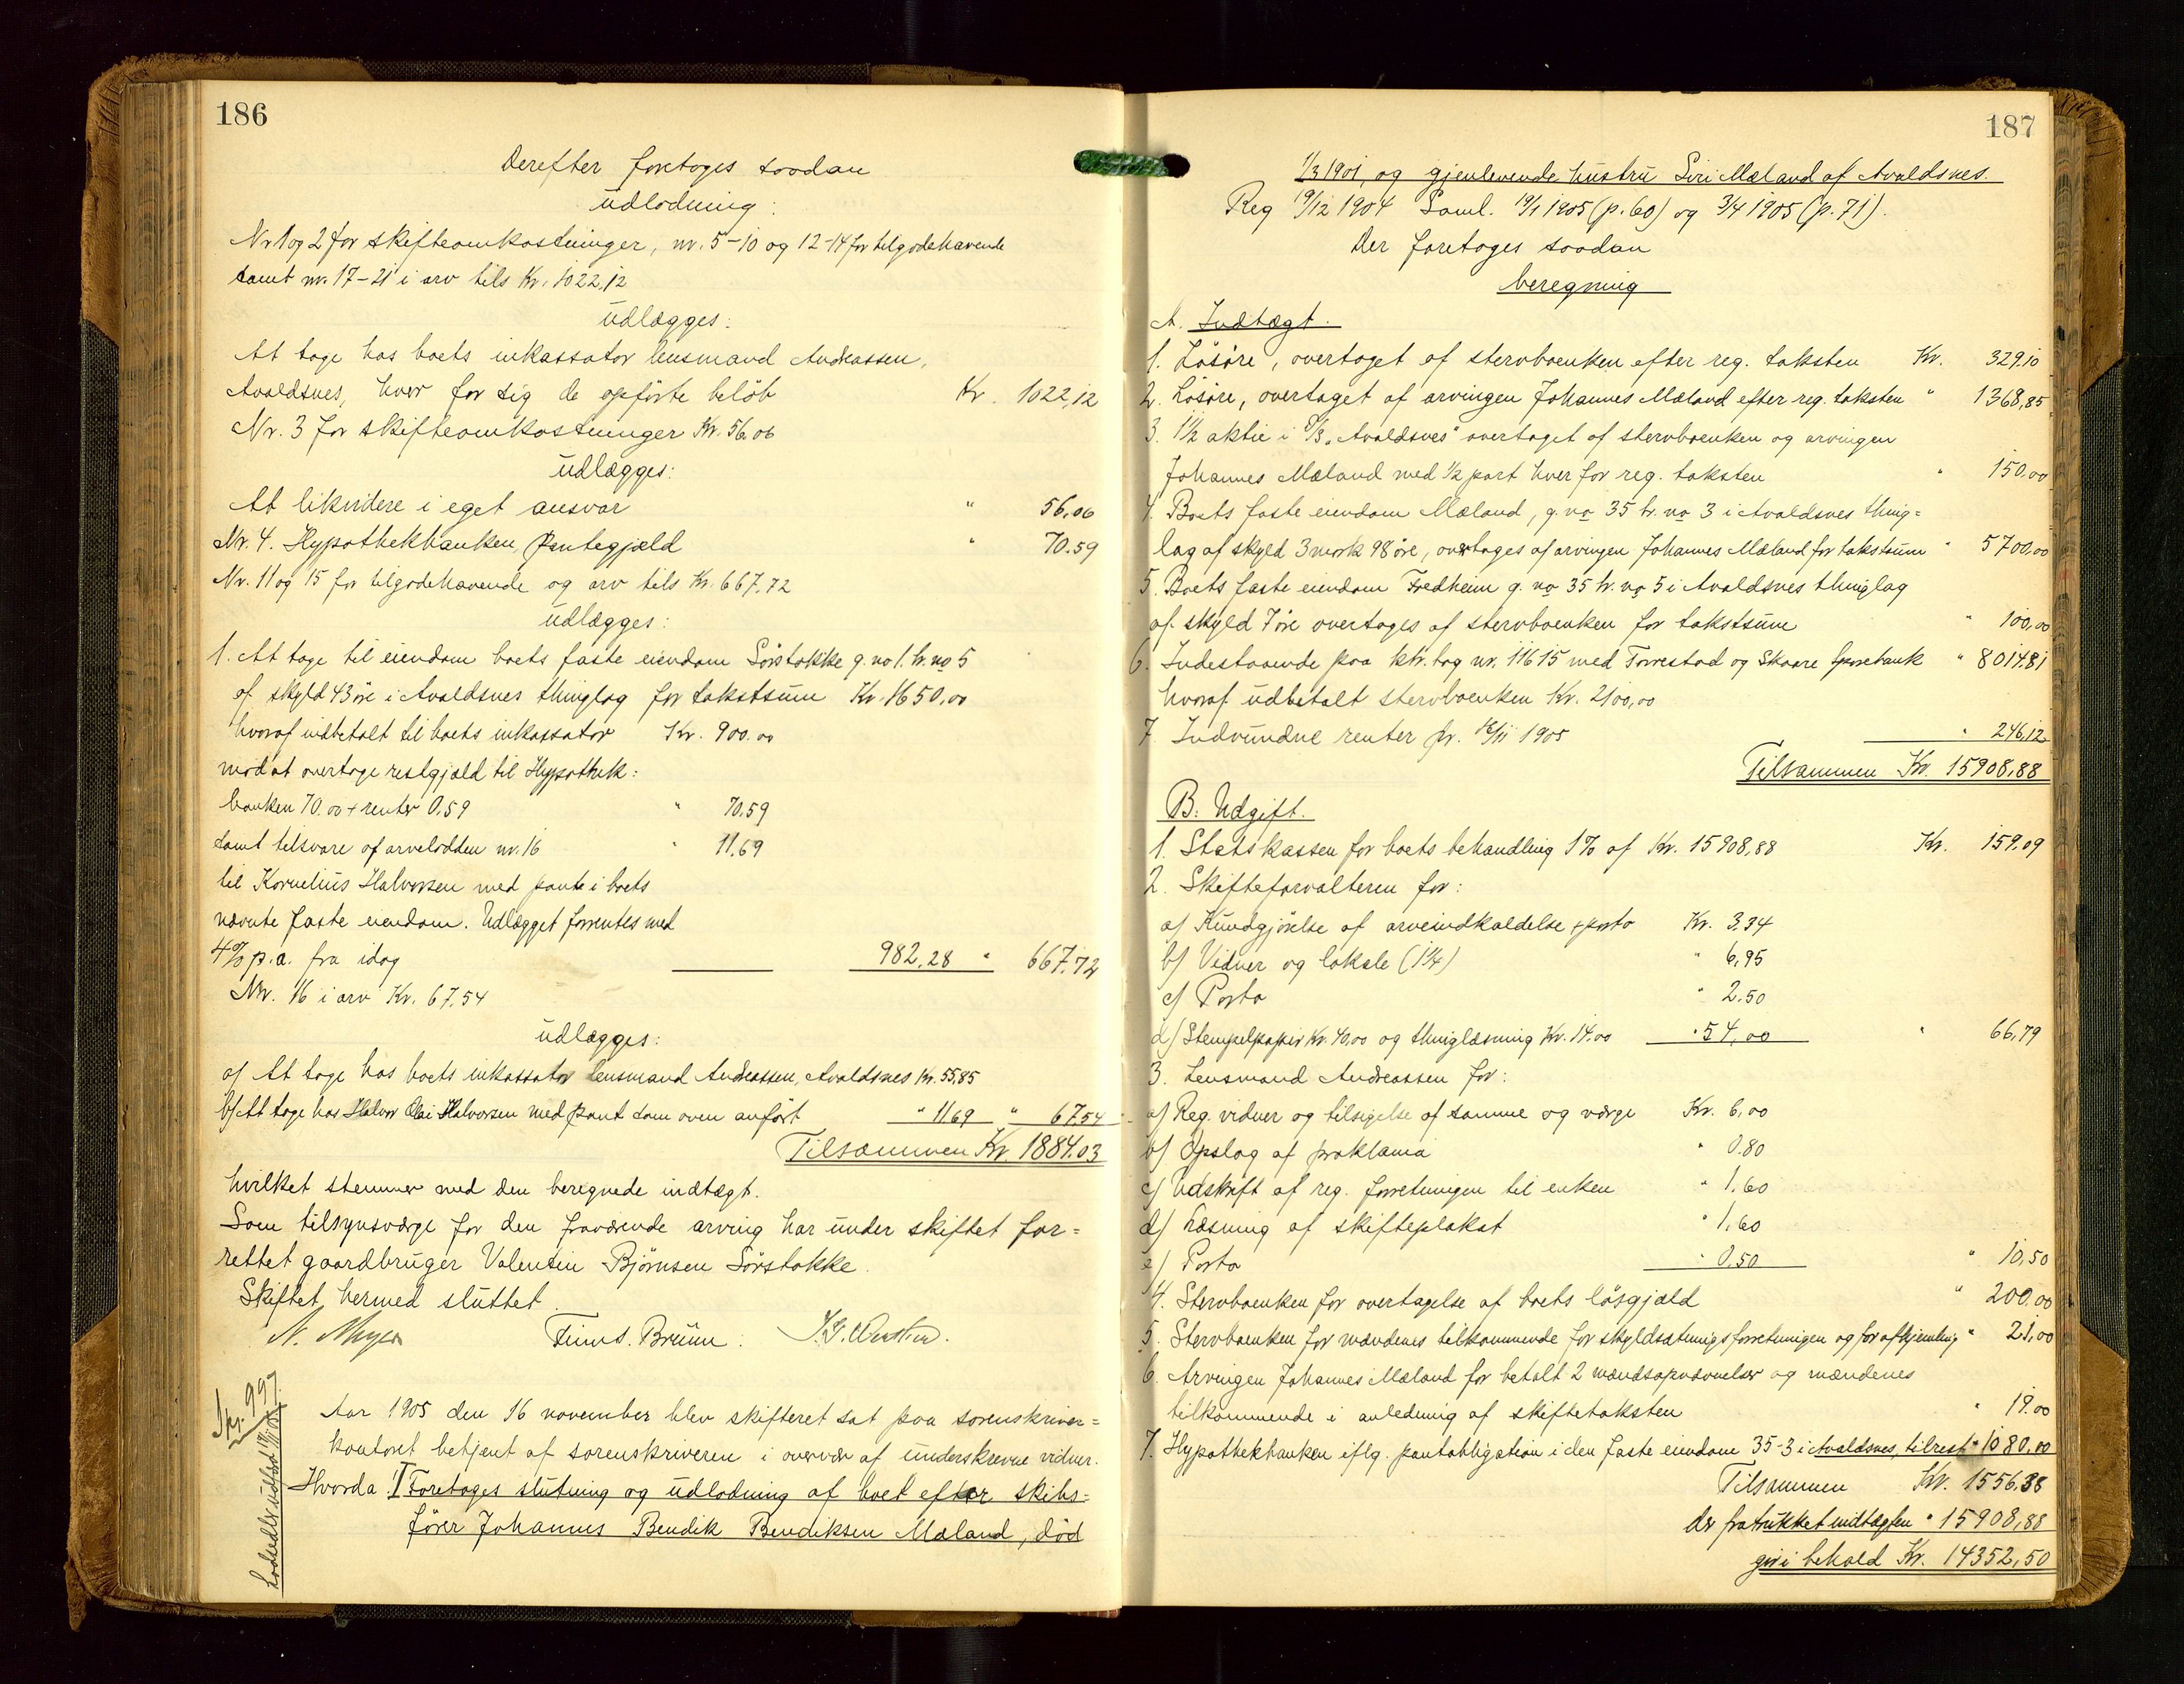 186
Derefter foretoges soodan
udlodning:
Nr 1 og 2 for skifteomkostninger, nr. 5-10 og 12-14 for tilgodehavende
samt nr. 17-21 i arv tils Kr. 1022,12
udlægges:
At tage hos boets inkassator lensmand Andreassen,
Avaldsnes, hver for sig de opförte belöb Kr. 1022,12
Nr. 3 for skifteomkostninger Kr. 56.06
udlægges:
At likvidere i eget ansvar " 56,06
Nr. 4. Hypothekbanken, Pantegjæld " 70.59
Nr. 11 og 15 for tilgodehavende og arv tils Kr. 667,72
udlægges:
1. At tage til eiendom boets faste eiendom Sörstokke g. no 1. br. no 5
af skyld 43 öre i Avaldsnes thinglag for takstsum Kr. 1650,00
hvoraf indbetalt til boets inkassator Kr. 900.00
mod at overtage restgjæld til Hypothek:
banken 70.00 + renter 0,59 " 70,59
samt tilsvare af arvelodden nr. 16 " 11,69
til Kornelius Halvorsen med pante i boets
nævnte faste eiendom. Udlægget forrentes med
4% p.a. fra idag 982,28 " 667,72
Nr. 16 i arv Kr. 67,54
udlægges:
a) At tage hos boets inkassator lensmand Andreassen, Avaldsnes Kr. 55,85
b) At tage hos Halvor Olai Halvorsen med pant som oven anfört " 11,69 " 67,54
Tilsammen Kr. 1884.03
hvilket stemmer med den beregnede indtægt.
Som tilsynsværge for den fraværende arving har under skiftet for=
rettet gaardbruger Valentin Björnsen Sörstokke.
Skiftet hermed sluttet.
N. Meyer Finn S. Bruun.
Spr. 997.
Aar 1905 den 16 november blev skifteret sat paa sorenskriver=
kontoret betjent af sorenskriveren i overvær af underskrevne vidner.
Hvorda: I Foretoges slutning og udlodning af boet efter skibs=
förer Johannes Bendik Bendiksen Mæland, död
187
1/3 1901, og gjenlevende hustru Siri Mæland af Avaldsnes.
Reg 19/12 1904 Saml. 19/1 1905 (p. 60) og 3/4 1905 (p. 71).
Der foretoges soodan
beregning
A. Indtægt.
1. Lösöre, overtaget af stervboenken efter reg. taksten Kr. 329,10
2. Lösöre, overtaget af arvingen Johannes Mæland efter reg. taksten " 1368,85
3. 1½ aktie i D/S „Avaldsnes" overtaget af stervboenken og arvingen
Johannes Mæland med ½ part hver for reg. taksten " 150.00
4. Boets faste eiendom Mæland, g. no 35 br. no 3 i Avaldsnes thing=
lag af skyld 3 mark 98 öre, overtages af arvingen Johannes Mæland for takstsum " 5700,00
5. Boets faste eiendom Fredheim g. no 35 br. no 5 i Avaldsnes thinglag
af skyld 7 öre overtages af stervboenken for takstsum " 100,00
6. Indestaaende paa ktr. bog nr. 11615 med Torvestad og Skaare sparebank " 8014,81
hvoraf udbetalt stervboenken Kr. 2100,00
7. Indvundne renter pr. 15/11 1905 " 246,12
Tilsammen Kr. 15908,88
B. Udgift.
1. Statskassen for boets behandling 1% af Kr. 15908,88 Kr. 159,09
2. Skifteforvalteren for:
a) Kundgjörelse af arveindkaldelse + porto Kr. 3,34
b) Vidner og lokale (1¼) " 6,95
c) Porto " 2.50
d) Stempelpapir Kr. 40,00 og thinglæsning Kr. 14.00 " 54,00 " 66,79
3. Lensmand Andreassen for:
a) Reg. vidner og tilsigelse af samme og værge Kr. 6,00
b) Opslag af proklama " 0.80
c) Udskrift af reg. forretningen til enken " 1,60
d) Læsning af skifteplakat " 1,60
e) Porto " 0.50 " 10,50
4. Stervboenken for overtagelse af boets lösgjæld " 200,00
5. Stervboenken for mændenes tilkommende for skyldsætningsforretningen og for afhjemling " 21,00
6. Arvingen Johannes Mæland for betalt 2 mændsopnævnelser og mændenes
tilkommende i anledning af skiftetaksten " 19.00
7. Hypothekbanken iflg. pantobligation i den faste eiendom 35-3 i Avaldsnes, tilrest " 1080,00
Tilsammen Kr. 1556,38
der fratrukket indtægten " 15908,88
giver i behold Kr. 14352,50